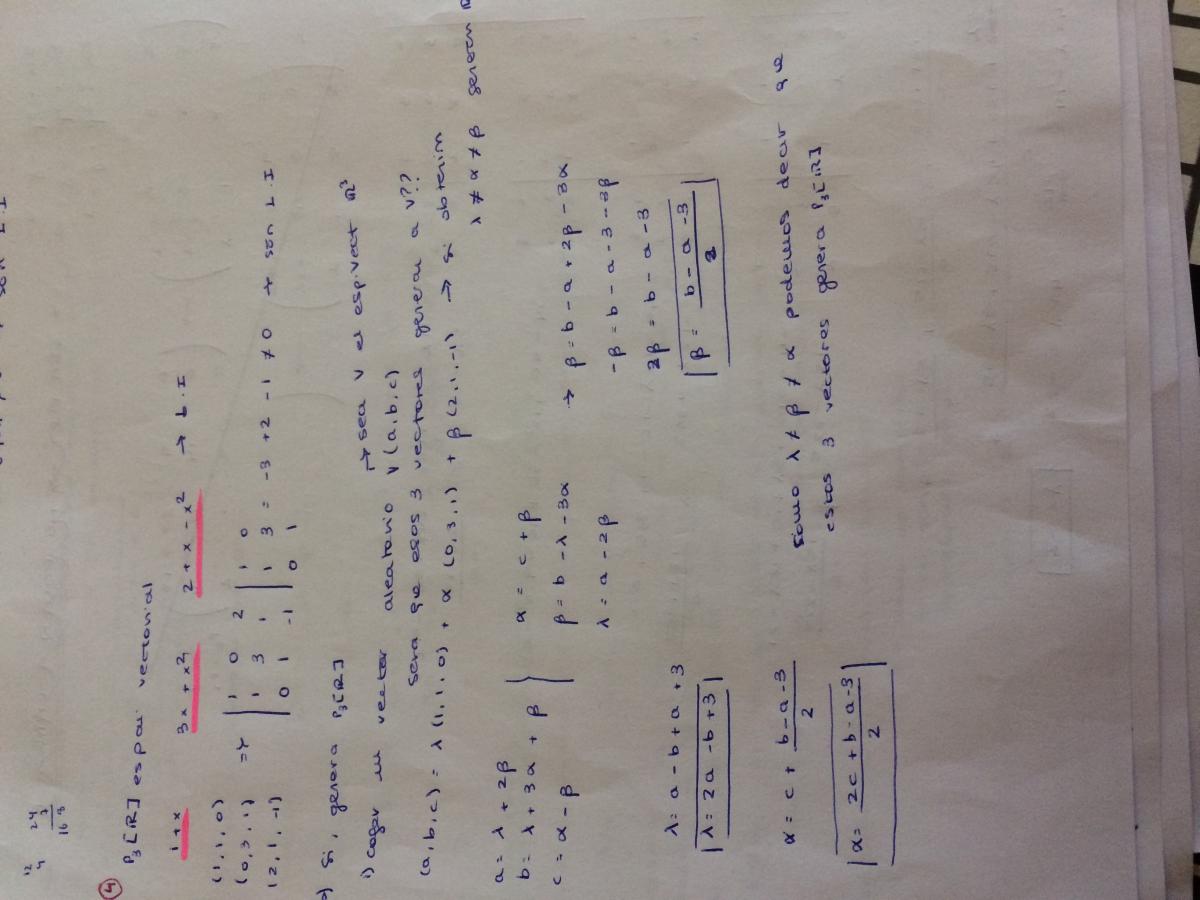 12 24
4 3
16 8
④ P₃[ℝ] espai vectorial
1+x 3x + x² 2 + x - x² → L.I
(1,1,0)
(0,3,1)
(2,1,-1)
=> | 1 0 2 | 1 0
| 1 3 1 | 1 3 = -3 + 2 - 1 ≠ 0 → són L.I
| 0 1 -1 | 0 1
) Si, genera P₃[ℝ]
→ sea V el esp.vect ℝ³
1) coger un vector aleatorio v(a,b,c)
sera que esos 3 vectores generan a V??
(a,b,c) = λ(1,1,0) + α(0,3,1) + β(2,1,-1) → si obtenim
λ ≠ α ≠ β generen
a = λ + 2β
b = λ + 3α + β
c = α - β
α = c + β
β = b - λ - 3α
λ = a - 2β
→ β = b - a + 2β - 3α
-β = b - a - 3 - 3β
2β = b - a - 3
β = (b - a - 3)/2
λ = a - b + a + 3
λ = 2a - b + 3
α = c + (b - a - 3)/2
α = (2c + b - a - 3)/2
Como λ ≠ β ≠ α podemos decir que
estos 3 vectores genera P₃[ℝ]